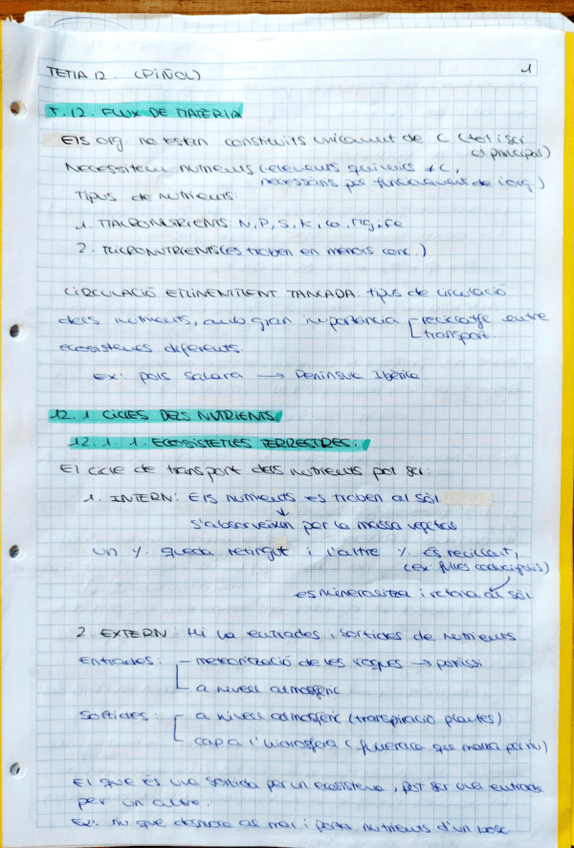 TEMA 12. (PIÑOL) 1
T.12. FLUX DE MATÈRIA
Els org. no estan constituïts únicament de C (tot i ser
el principal)
Necessiten nutrients (elements químics ≠ C,
necessaris pel funcionament de l'org.)
Tipus de nutrients:
1. MACRONUTRIENTS: N, P, S, K, Ca, Mg, Fe
2. MICRONUTRIENTS (es troben en menors conc.)
CIRCULACIÓ EMINENTMENT TANCADA: tipus de circulació
dels nutrients, amb gran importància reciclatge entre
transport
ecosistemes diferents.
Ex: pols Sàhara → Península Ibèrica.
12.1 CICLES DELS NUTRIENTS
12.1.1. ECOSISTEMES TERRESTRES:
El cicle de transport dels nutrients pot ser:
1. INTERN: Els nutrients es troben al sòl
↓
s'absorbeixen per la massa vegetal
Un % queda retingut i l'altre % és reciclat,
(ex: fulles caducifolis)
es mineralitza i retorna al sòl
2. EXTERN: Hi ha entrades i sortides de nutrients
Entrades: - meteorització de les roques →
a nivell atmosfèric
Sortides: a nivell atmosfèric (transpiració plantes)
cap a l'hidrosfera (
El que és una sortida per un ecosistema, pot ser una entrada
per un altre.
Ex: riu que desemboca al mar i porta nutrients d'un bosc